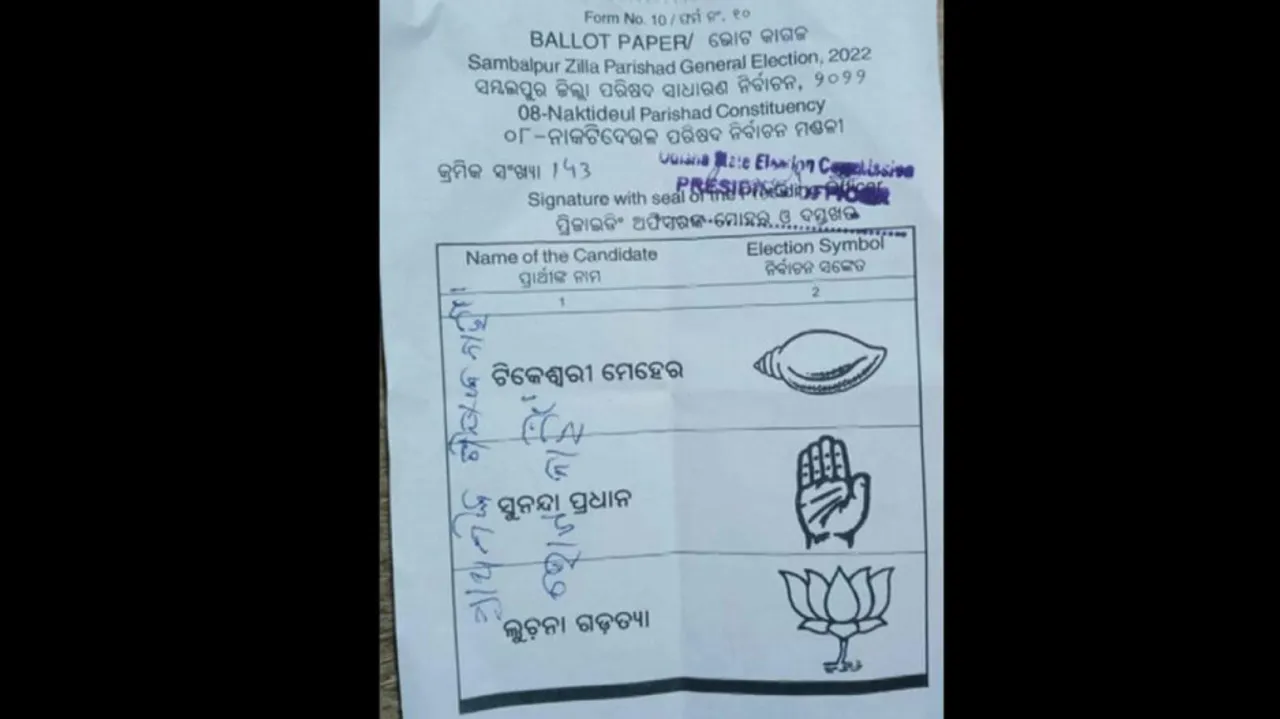 Form No. 10 / ଫର୍ମ ନଂ. ୧୦
BALLOT PAPER/ ଭୋଟ କାଗଜ
Sambalpur Zilla Parishad General Election, 2022
ସମ୍ବଲପୁର ଜିଲ୍ଲା ପରିଷଦ ସାଧାରଣ ନିର୍ବାଚନ, ୨୦୨୨
08-Naktideul Parishad Constituency
୦୮-ନାକଟିଦେଉଳ ପରିଷଦ ନିର୍ବାଚନ ମଣ୍ଡଳୀ
କ୍ରମିକ ସଂଖ୍ୟା 143
State Election Commission
Signature with seal of the Presiding Officer
ପ୍ରିଜାଇଡିଂ ଅଫିସରଙ୍କ ମୋହର ଓ ଦସ୍ତଖତ
Name of the Candidate
ପ୍ରାର୍ଥୀଙ୍କ ନାମ
Election Symbol
ନିର୍ବାଚନ ସଙ୍କେତ
1
2
ଟିକେଶ୍ୱରୀ ମେହେର
ସୁନନ୍ଦା ପ୍ରଧାନ
ଲୁଚନା ଗଡ଼ତ୍ୟା